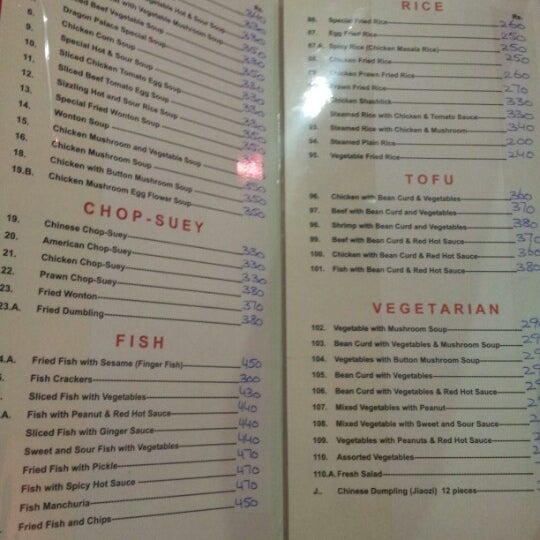 Vegetable Hot & Sour Soup 340
with Vegetable Mushroom Soup 330
Beef Vegetable Soup 330
Dragon Palace Special Soup 330
8. Chicken Corn Soup 350
9. Special Hot & Sour Soup
10. Sliced Chicken Tomato Egg Soup
11. Sliced Beef Tomato Egg Soup
12. Sizzling Hot and Sour Rice Soup
13. Special Fried Wonton Soup
14. Wonton Soup
15. Chicken Mushroom and Vegetable Soup
16. Chicken Mushroom Soup
18. Chicken with Button Mushroom Soup 350
19.B. Chicken Mushroom Egg Flower Soup 350
CHOP-SUEY
19. Chinese Chop-Suey 330
20. American Chop-Suey 330
21. Chicken Chop-Suey 330
22. Prawn Chop-Suey 380
23. Fried Wonton 370
23.A. Fried Dumbling 380
FISH
Fried Fish with Sesame (Finger Fish) 450
Fish Crackers 300
Sliced Fish with Vegetables 430
Fish with Peanut & Red Hot Sauce 440
Sliced Fish with Ginger Sauce 440
Sweet and Sour Fish with Vegetables 440
Fried Fish with Pickle 470
Fish with Spicy Hot Sauce 470
Fish Manchuria 470
Fried Fish and Chips 450
RICE
Rs.
86. Special Fried Rice 260
87. Egg Fried Rice 250
87.A. Spicy Rice (Chicken Masala Rice) 250
88. Chicken Fried Rice 250
Chicken Prawn Fried Rice 260
Prawn Fried Rice 270
Chicken Shashlick 330
Steamed Rice with Chicken & Tomato Sauce 330
93. Steamed Rice with Chicken & Mushroom 340
94. Steamed Plain Rice 200
95. Vegetable Fried Rice 240
TOFU
96. Chicken with Bean Curd & Vegetables 360
97. Beef with Bean Curd and Vegetables 370
98. Shrimp with Bean Curd and Vegetables 380
99. Beef with Bean Curd & Red Hot Sauce 370
100. Chicken with Bean Curd & Red Hot Sauce 360
101. Fish with Bean Curd & Red Hot Sauce 380
VEGETARIAN
102. Vegetable with Mushroom Soup
103. Bean Curd with Vegetables & Mushroom Soup
104. Vegetables with Button Mushroom Soup
105. Bean Curd with Vegetables
106. Bean Curd with Vegetables & Red Hot Sauce
107. Mixed Vegetables with Peanut
108. Mixed Vegetable with Sweet and Sour Sauce
109. Vegetables with Peanuts & Red Hot Sauce
110. Assorted Vegetables
110.A. Fresh Salad
J.. Chinese Dumpling (Jiaozi) 12 pieces